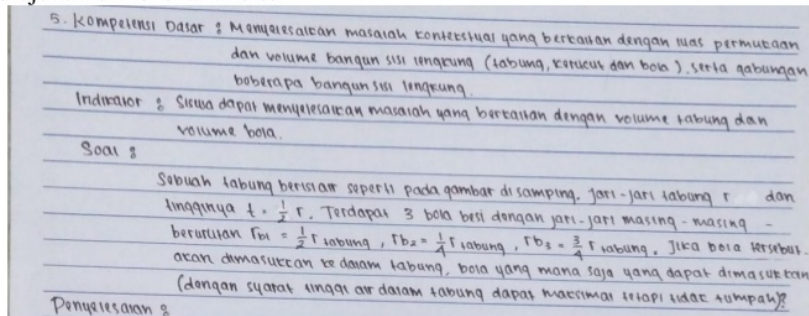 5. Kompetensi Dasar : Menyelesaikan masalah kontekstual yang berkaitan dengan luas permukaan
dan volume bangun sisi lengkung (tabung, kerucut dan bola), serta gabungan
beberapa bangun sisi lengkung.
Indikator : Siswa dapat menyelesaikan masalah yang berkaitan dengan volume tabung dan
volume bola.
Soal :
Sebuah tabung berisi air seperti pada gambar di samping. Jari-jari tabung r dan
tingginya t = 1/2 r. Terdapat 3 bola besi dengan jari-jari masing-masing -
berurutan rb1 = 1/2 r tabung, rb2 = 1/4 r tabung, rb3 = 3/4 r tabung. Jika bola tersebut
akan dimasukkan ke dalam tabung, bola yang mana saja yang dapat dimasukkan
(dengan syarat tinggi air dalam tabung dapat maksimal tetapi tidak tumpah)?
Penyelesaian :